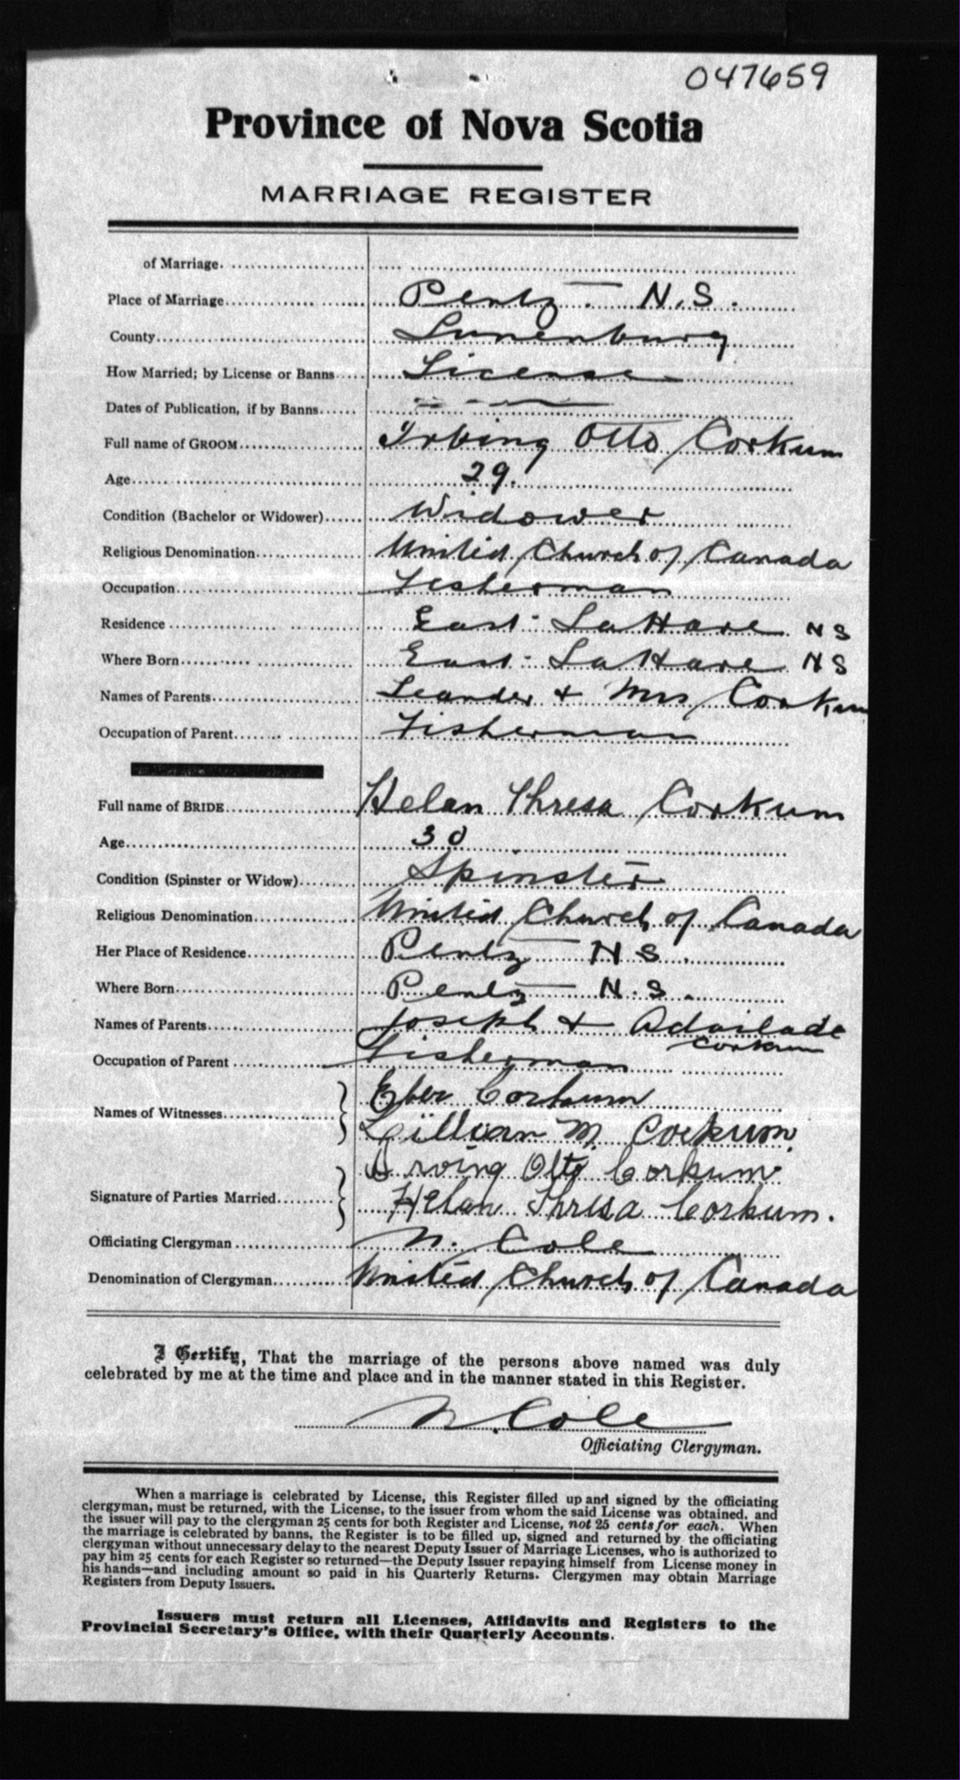 047659
Province of Nova Scotia
MARRIAGE REGISTER
of Marriage
Place of Marriage Pentz - N.S.
County Lunenburg
How Married; by License or Banns License
Dates of Publication, if by Banns
Full name of GROOM Irving Otto Corkum
Age 29.
Condition (Bachelor or Widower) Widower
Religious Denomination United Church of Canada
Occupation Fisherman
Residence East - LaHave NS
Where Born East - LaHave NS
Names of Parents Leander + Mrs Corkum
Occupation of Parent Fisherman
Full name of BRIDE Helan Thresa Corkum
Age 30
Condition (Spinster or Widow) Spinster
Religious Denomination United Church of Canada
Her Place of Residence Pentz N S.
Where Born Pentz N.S.
Names of Parents Joseph + Adailade
Corkum
Occupation of Parent Fisherman
Names of Witnesses Eber Corkum
Lillian M. Corkum.
Signature of Parties Married Irving Otto Corkum.
Helan Thresa Corkum.
Officiating Clergyman N. Cole
Denomination of Clergyman United Church of Canada
I Certify, That the marriage of the persons above named was duly
celebrated by me at the time and place and in the manner stated in this Register.
N. Cole
Officiating Clergyman.
When a marriage is celebrated by License, this Register filled up and signed by the officiating
clergyman, must be returned, with the License, to the issuer from whom the said License was obtained, and
the issuer will pay to the clergyman 25 cents for both Register and License, not 25 cents for each. When
the marriage is celebrated by banns, the Register is to be filled up, signed and returned by the officiating
clergyman without unnecessary delay to the nearest Deputy Issuer of Marriage Licenses, who is authorized to
pay him 25 cents for each Register so returned—the Deputy Issuer repaying himself from License money in
his hands—and including amount so paid in his Quarterly Returns. Clergymen may obtain Marriage
Registers from Deputy Issuers.
Issuers must return all Licenses, Affidavits and Registers to the
Provincial Secretary's Office, with their Quarterly Accounts.